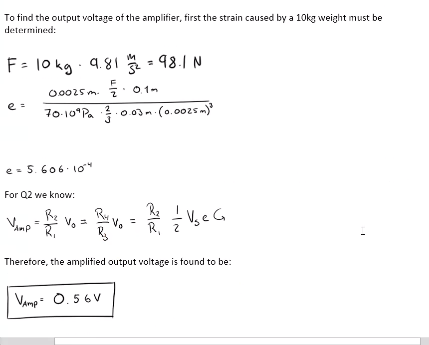 To find the output voltage of the amplifier, first the strain caused by a 10kg weight must be
determined:
F = 10 kg · 9.81 m/s² = 98.1 N
e = (0.0025 m · F/2 · 0.1 m) / (70·10⁹ Pa · 2/3 · 0.03 m · (0.0025 m)³)
e = 5.606·10⁻⁴
For Q2 we know:
V_Amp = R₂/R₁ V₀ = R₄/R₃ V₀ = R₂/R₁ 1/2 V_s e G
Therefore, the amplified output voltage is found to be:
V_Amp = 0.56 V